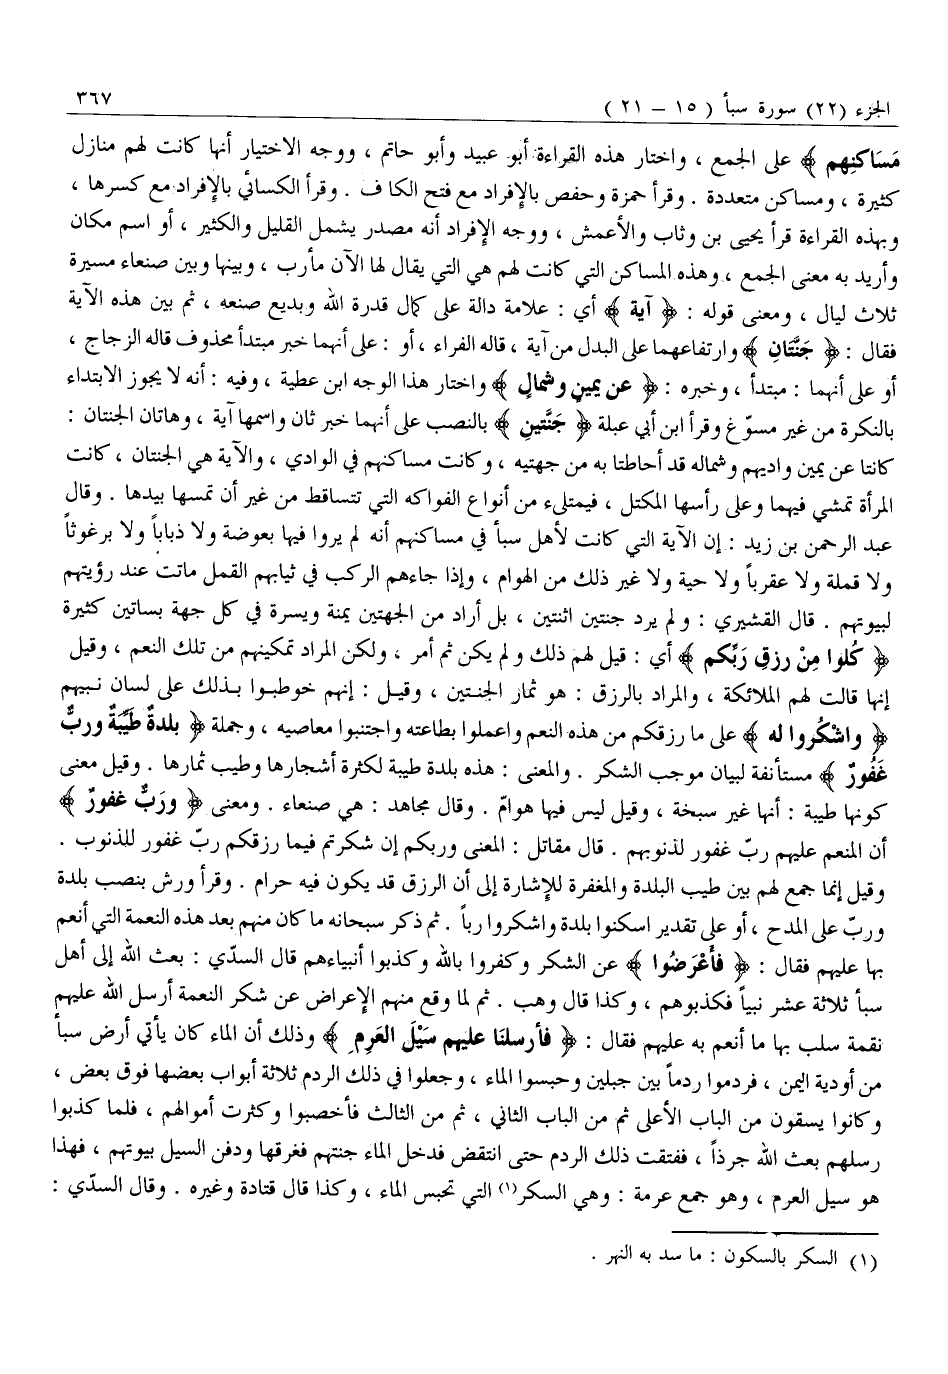 الجزء (٢٢) سورة سبأ ( ١٥ – ٢١ ) ٣٦٧
مَسَاكنِهم ﴾ على الجمع ، واختار هذه القراءة أبو عبيد وأبو حاتم ، ووجه الاختيار أنها كانت لهم منازل
كثيرة ، ومساكن متعددة . وقرأ حمزة وحفص بالإفراد مع فتح الكاف . وقرأ الكسائي بالإفراد مع كسرها ،
وبهذه القراءة قرأ يحيى بن وثاب والأعمش ، ووجه الإفراد أنه مصدر يشمل القليل والكثير ، أو اسم مكان
وأريد به معنى الجمع ، وهذه المساكن التي كانت لهم هي التي يقال لها الآن مأرب ، وبينها وبين صنعاء مسيرة
ثلاث ليال ، ومعنى قوله : ﴿ آية ﴾ أي : علامة دالة على كمال قدرة الله وبديع صنعه ، ثم بين هذه الآية
فقال : ﴿ جَنَّتَانِ ﴾ وارتفاعهما على البدل من آية ، قاله الفراء ، أو : على أنهما خبر مبتدأ محذوف قاله الزجاج ،
أو على أنهما : مبتدأ ، وخبره : ﴿ عن يمينٍ وشمالٍ ﴾ واختار هذا الوجه ابن عطية ، وفيه : أنه لا يجوز الابتداء
بالنكرة من غير مسوّغ وقرأ ابن أبي عبلة ﴿ جَنَّتينِ ﴾ بالنصب على أنهما خبر ثان واسمها آية ، وهاتان الجنتان :
كانتا عن يمين واديهم وشماله قد أحاطتا به من جهتيه ، وكانت مساكنهم في الوادي ، والآية هي الجنتان ، كانت
المرأة تمشي فيهما وعلى رأسها المكتل ، فيمتلىء من أنواع الفواكه التي تتساقط من غير أن تمسها بيدها . وقال
عبد الرحمن بن زيد : إن الآية التي كانت لأهل سبأ في مساكنهم أنه لم يروا فيها بعوضة ولا ذباباً ولا برغوثاً
ولا قملة ولا عقرباً ولا حية ولا غير ذلك من الهوام ، وإذا جاءهم الركب في ثيابهم القمل ماتت عند رؤيتهم
لبيوتهم . قال القشيري : ولم يرد جنتين اثنتين ، بل أراد من الجهتين يمنة ويسرة في كل جهة بساتين كثيرة
﴿ كُلوا مِنْ رزقِ رَبِّكم ﴾ أي : قيل لهم ذلك ولم يكن ثم أمر ، ولكن المراد تمكينهم من تلك النعم ، وقيل
إنها قالت لهم الملائكة ، والمراد بالرزق : هو ثمار الجنـتين ، وقيـل : إنهم خوطبـوا بـذلك على لسان نبـيهم
﴿ واشْكُروا له ﴾ على ما رزقكم من هذه النعم واعملوا بطاعته واجتنبوا معاصيه ، وجملة ﴿ بلدةٌ طَيِّبةٌ وربٌّ
غَفُورٌ ﴾ مستأنفة لبيان موجب الشكر . والمعنى : هذه بلدة طيبة لكثرة أشجارها وطيب ثمارها . وقيل معنى
كونها طيبة : أنها غير سبخة ، وقيل ليس فيها هوامّ . وقال مجاهد : هي صنعاء . ومعنى ﴿ ورَبٌّ غفورٌ ﴾
أن المنعم عليهم ربّ غفور لذنوبهم . قال مقاتل : المعنى وربكم إن شكرتم فيما رزقكم ربّ غفور للذنوب .
وقيل إنما جمع لهم بين طيب البلدة والمغفرة للإشارة إلى أن الرزق قد يكون فيه حرام . وقرأ ورش بنصب بلدة
وربّ على المدح ، أو على تقدير اسكنوا بلدة واشكروا رباً . ثم ذكر سبحانه ما كان منهم بعد هذه النعمة التي أنعم
بها عليهم فقال : ﴿ فأَعْرَضُوا ﴾ عن الشكر وكفروا بالله وكذبوا أنبياءهم قال السدّي : بعث الله إلى أهل
سبأ ثلاثة عشر نبياً فكذبوهم ، وكذا قال وهب . ثم لما وقع منهم الإعراض عن شكر النعمة أرسل الله عليهم
نقمة سلب بها ما أنعم به عليهم فقال : ﴿ فأرسلنَا عليهم سَيْلَ العَرِمِ ﴾ وذلك أن الماء كان يأتي أرض سبأ
من أودية اليمن ، فردموا ردماً بين جبلين وحبسوا الماء ، وجعلوا في ذلك الردم ثلاثة أبواب بعضها فوق بعض ،
وكانوا يسقون من الباب الأعلى ثم من الباب الثاني ، ثم من الثالث فأخصبوا وكثرت أموالهم ، فلما كذبوا
رسلهم بعث الله جرذاً ، ففتقت ذلك الردم حتى انتقض فدخل الماء جنتهم فغرقها ودفن السيل بيوتهم ، فهذا
هو سيل العرم ، وهو جمع عرمة : وهي السكر(١) التي تحبس الماء ، وكذا قال قتادة وغيره . وقال السدّي :
(١) السكر بالسكون : ما سد به النهر .